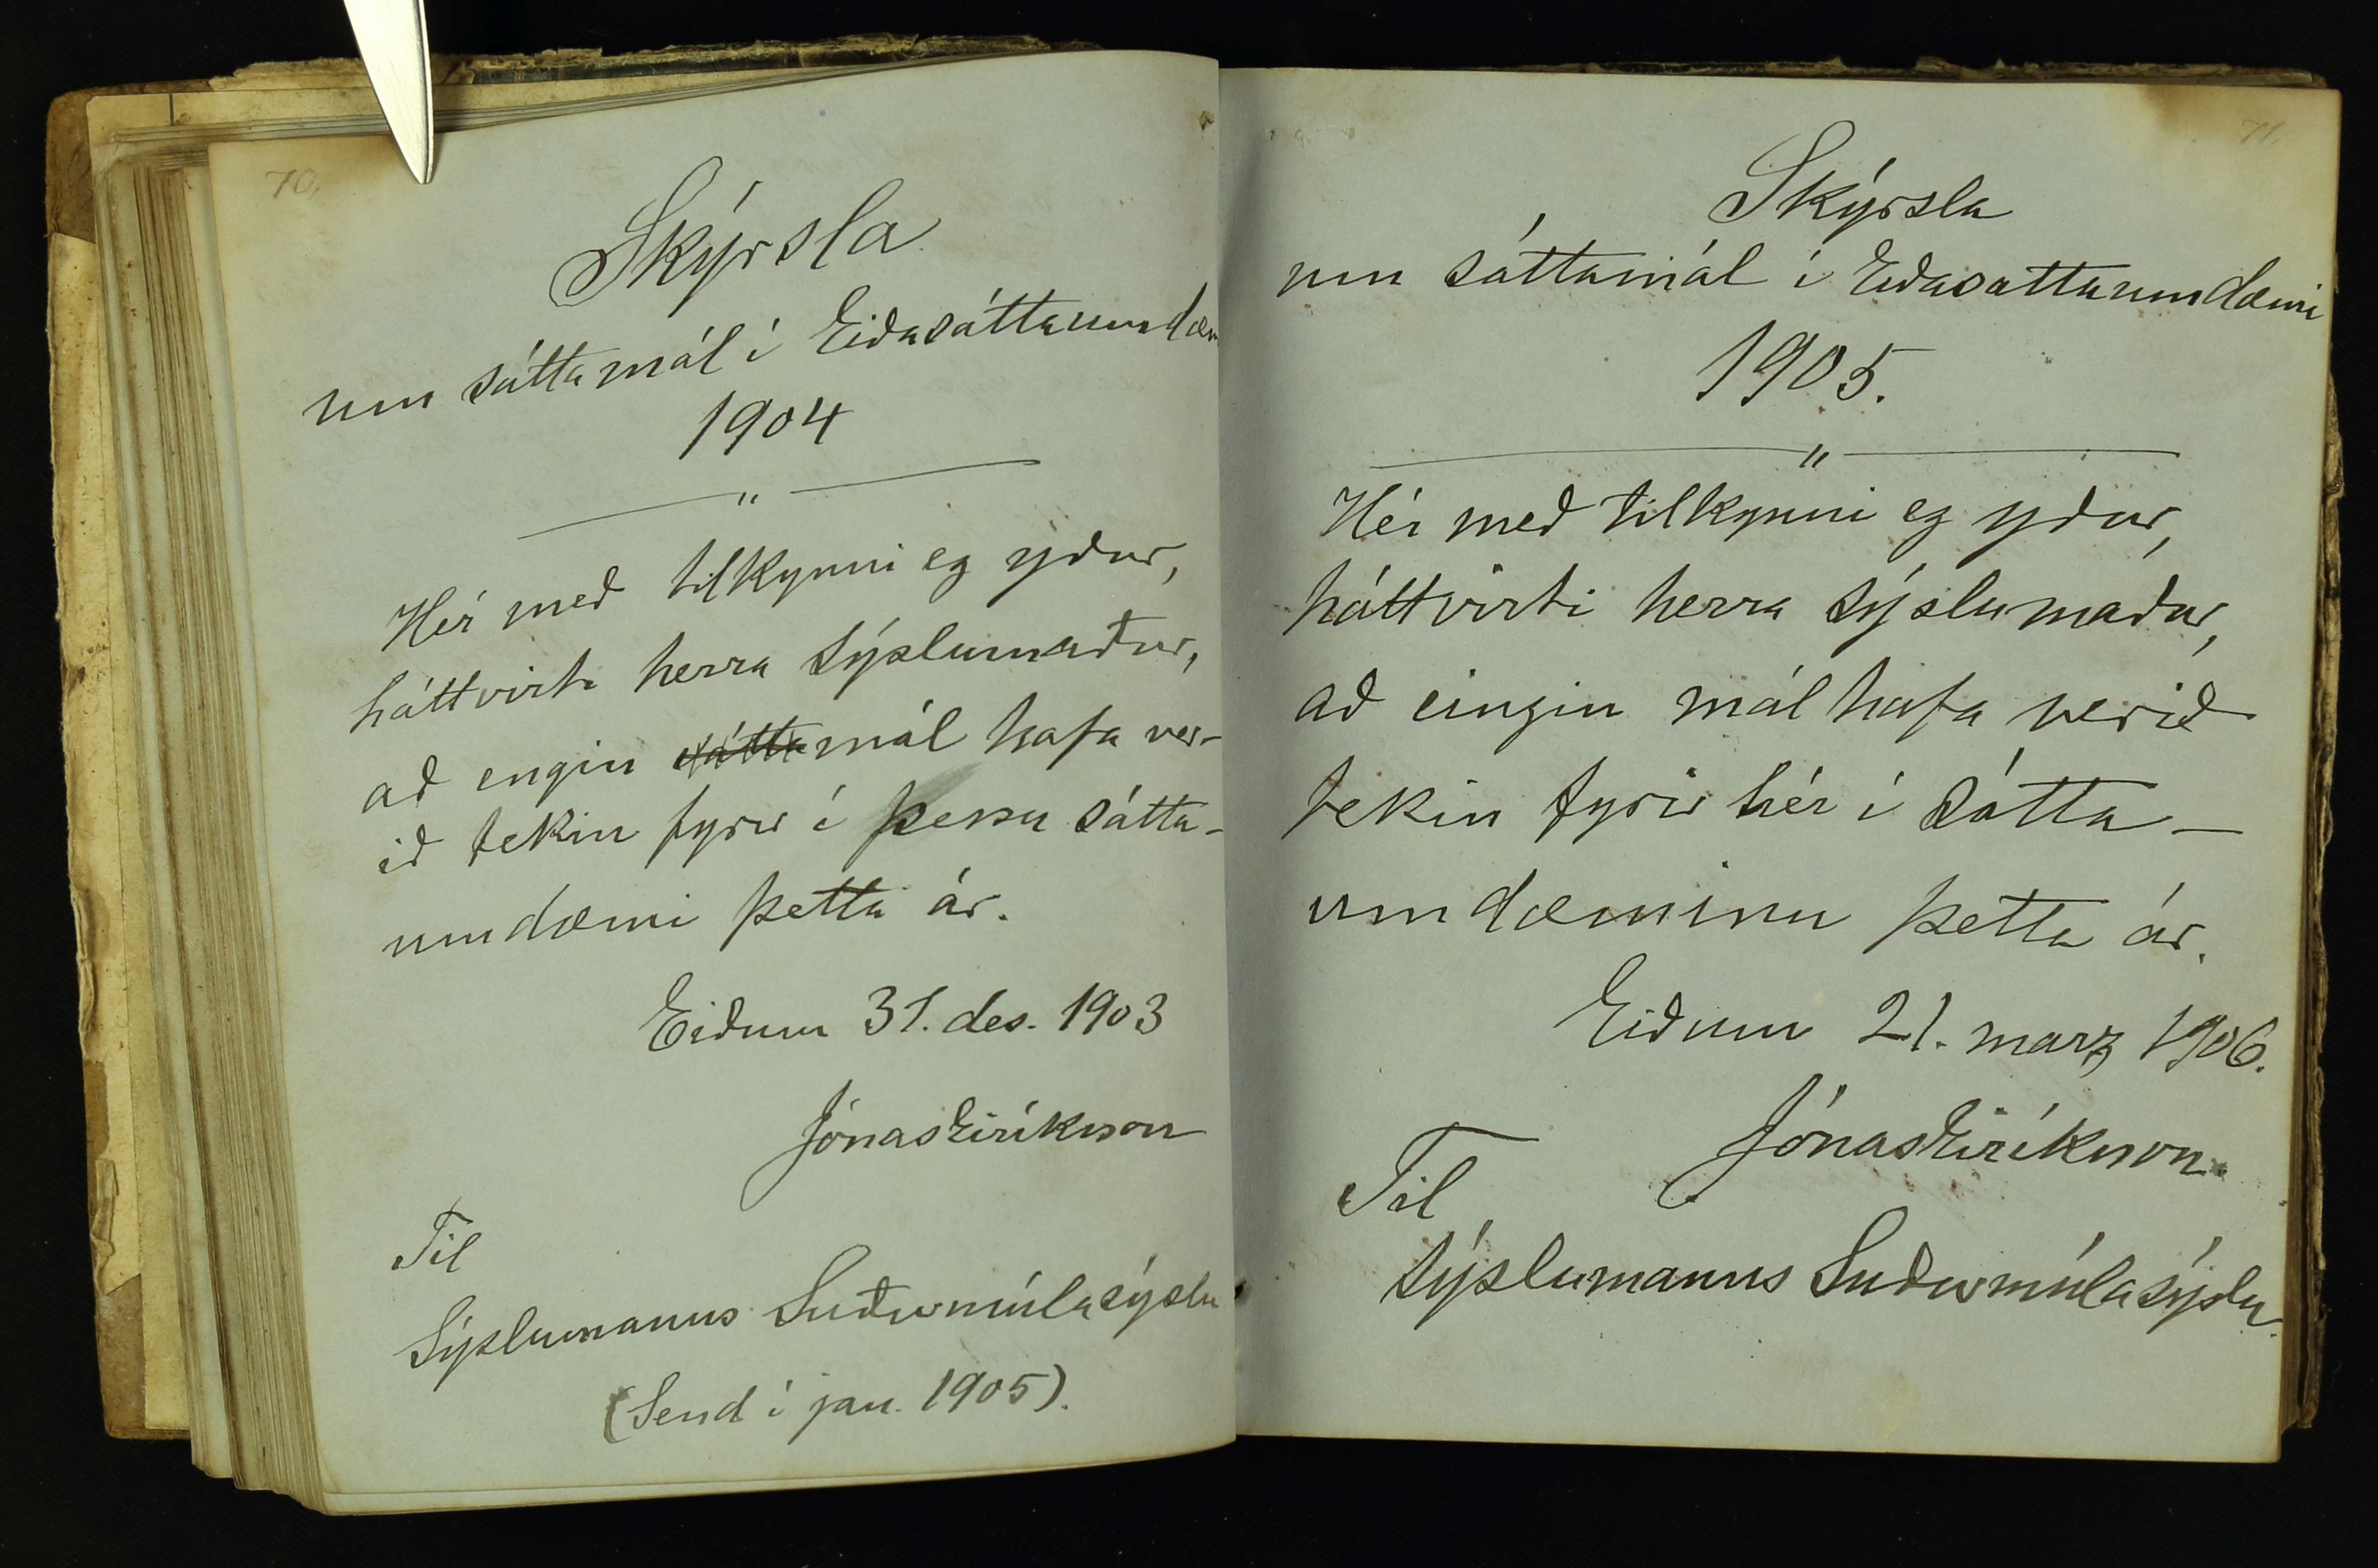 70.
Skýrsla
um sáttamál í Eiðasáttaumdæm
1904
"
Hér með tilkynni eg yður,
háttvirti herra sýslumaður,
að engin sátta mál hafa ver-
ið tekin fyrir í þessu sátta-
umdæmi þetta ár.
Eiðum 31. des. 1903
Jónas Eiríksson
Til
Sýslumanns Suðurmúlasýslu
(Send í jan. 1905).
71.
Skýrsla
um sáttamál í Eiðasattaumdæmi
1905.
"
Hér með tilkynni eg yður,
háttvirti herra sýslumaður,
að eingin mál hafa verið
tekin fyrir hér í sátta-
umdæminu þetta ár.
Eiðum 21. marz 1906.
Jónas Eiríksson.
Til
sýslumanns Suðurmúlasýslu.